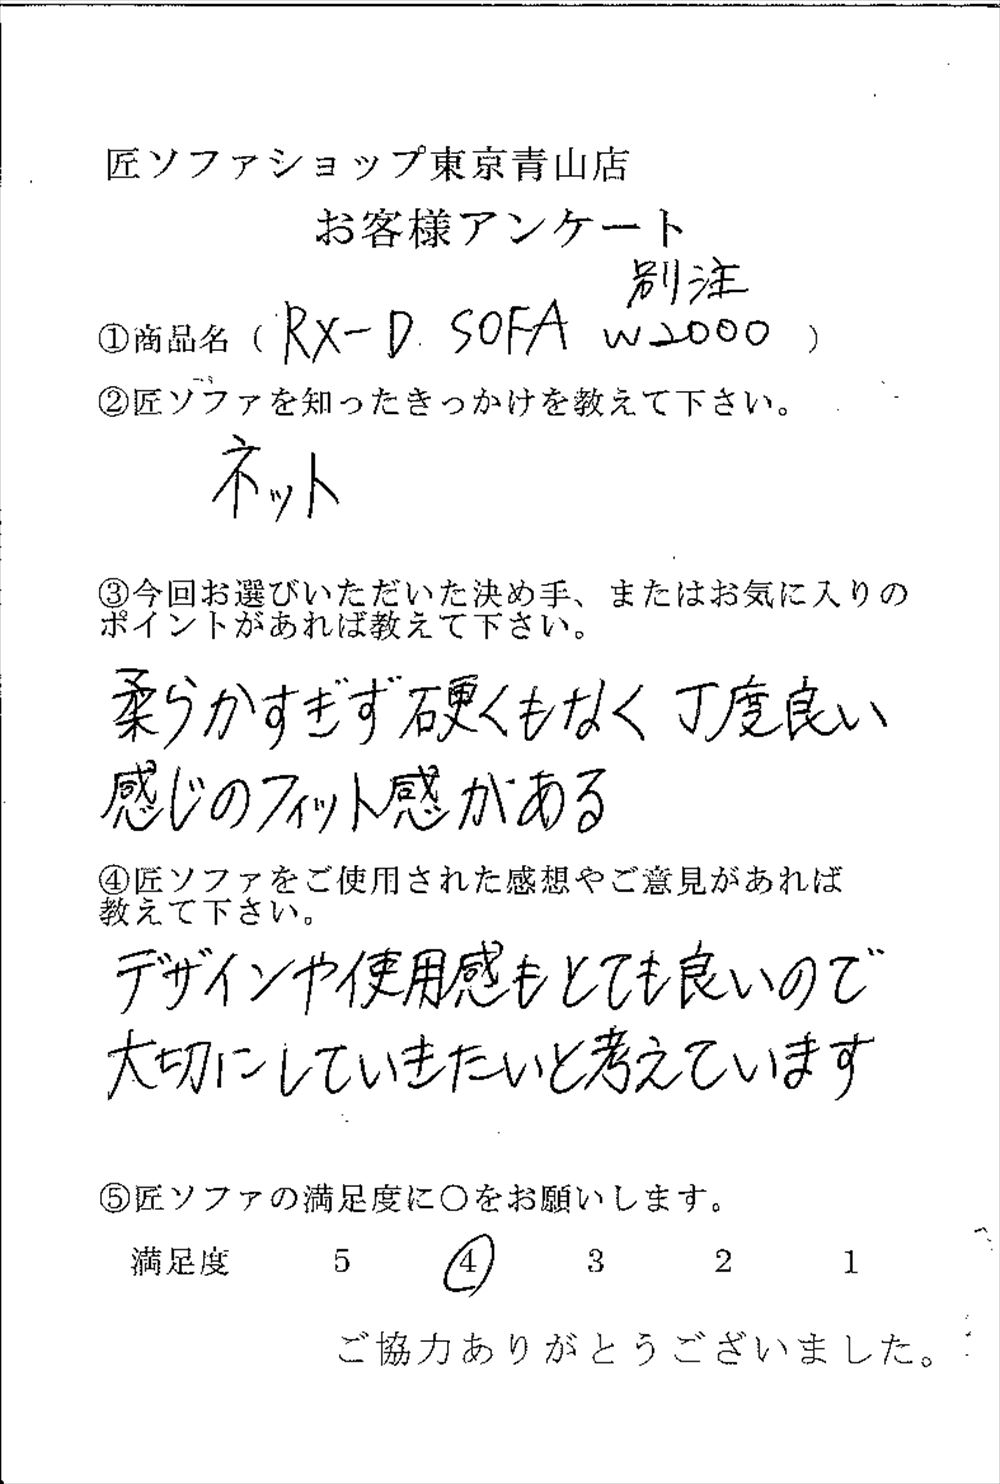 匠ソファショップ東京青山店
お客様アンケート
別注
①商品名（ RX-D SOFA W2000 ）
②匠ソファを知ったきっかけを教えて下さい。
ネット
③今回お選びいただいた決め手、またはお気に入りの
ポイントがあれば教えて下さい。
柔らかすぎず硬くもなく丁度良い
感じのフィット感がある
④匠ソファをご使用された感想やご意見があれば
教えて下さい。
デザインや使用感もとても良いので
大切にしていきたいと考えています
⑤匠ソファの満足度に〇をお願いします。
満足度 5 4 3 2 1
ご協力ありがとうございました。